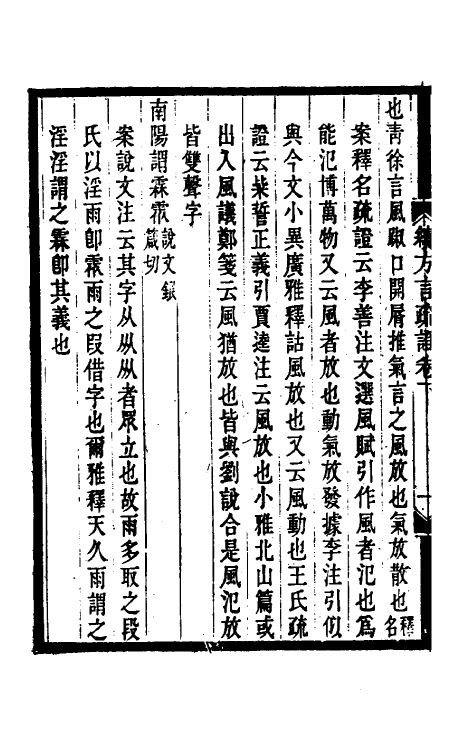 續方言疏證卷下
一
也靑徐言風踧口開脣推氣言之風放也氣放散也釋名
案釋名疏證云李善注文選風賦引作風者氾也爲
能氾博萬物又云風者放也動氣放發據李注引似
與今文小異廣雅釋詁風放也又云風動也王氏疏
證云柴誓正義引賈逵注云風放也小雅北山篇或
出入風議鄭箋云風猶放也皆與劉說合是風氾放
皆雙聲字
南陽謂霖霖說文銀箴切
案說文注云其字从㐺㐺者眾立也故雨多取之段
氏以淫雨卽霖雨之段借字也爾雅釋天久雨謂之
淫淫謂之霖卽其義也